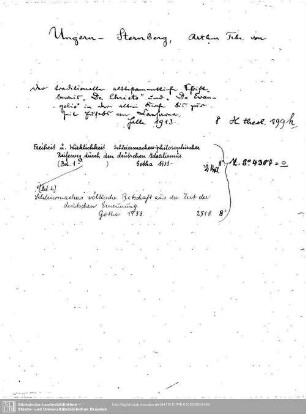 Ungern-Sternberg, Arthur Frhr von
Der traditionelle alttestamentliche Schrift-
beweis "De Christo" und "De Evan-
gelio" in der alten Kirche bis zur
Zeit Eusebs von Caesarea.
Halle 1913. 8 H. theol. 199 h
Freiheit u. Wirklichkeit. Schleiermachers philosophischer
Reifeweg durch den deutschen Idealismus
(Bd. 1) Gotha 1931 8°
[Bd 2]
Schleiermachers völkische Botschaft aus der Zeit der
deutschen Erneuerung
Gotha 1933 251 S. 8°